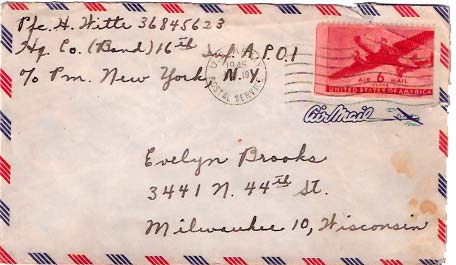 Pfc. H. Witte 36845623
Hq. Co. (Band) 16th Inf. A.P.O. 1
c/o Pm. New York, N.Y.
1945
POSTAL SERVICE
AIR 6 MAIL
CENTS
UNITED STATES OF AMERICA
Air Mail
Evelyn Brooks
3441 N. 44th St.
Milwaukee 10, Wisconsin